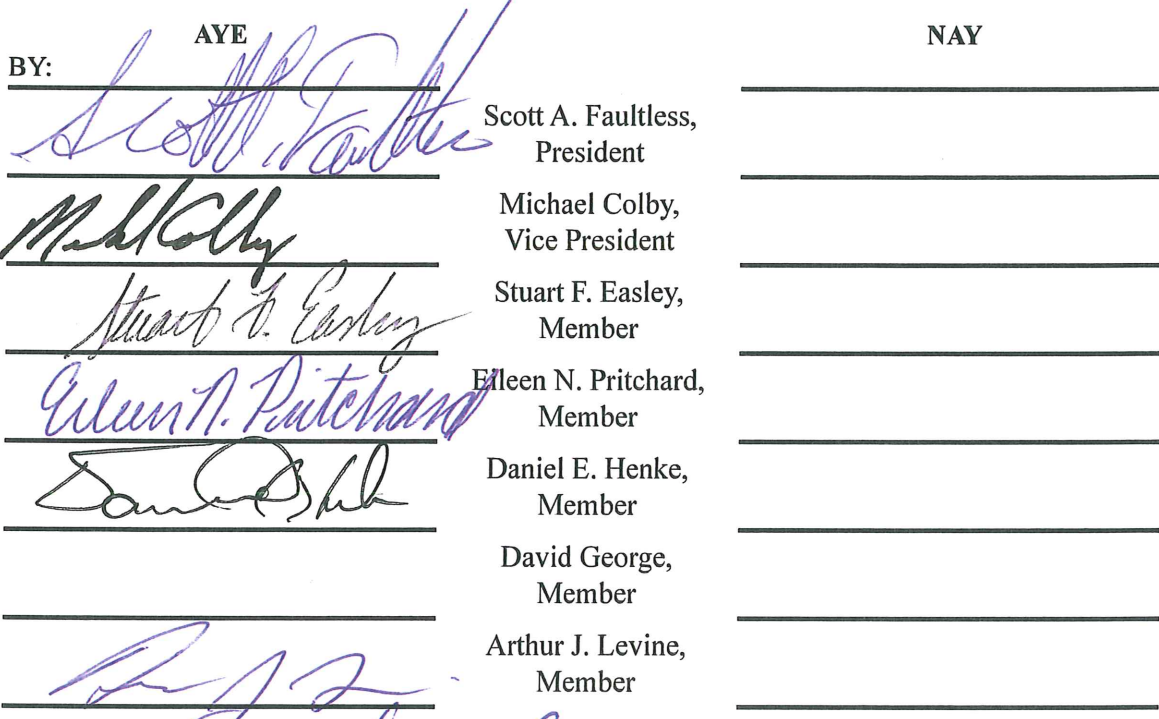 AYE NAY
BY:
Scott A. Faultless Scott A. Faultless,
President
Michael Colby Michael Colby,
Vice President
Stuart F. Easley Stuart F. Easley,
Member
Eileen N. Pritchard Eileen N. Pritchard,
Member
Daniel E. Henke,
Member
David George,
Member
Arthur J. Levine,
Member